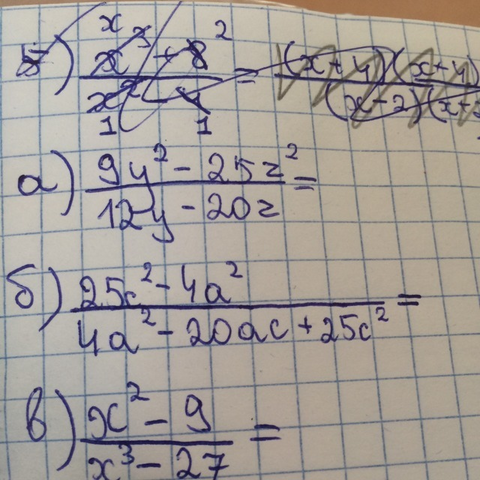 б) (x³ + 8)/(x² - 4) = (x+4)(x+4)/(x-2)(x+2
а) (9y² - 25z²)/(12y - 20z) =
б) (25c² - 4a²)/(4a² - 20ac + 25c²) =
в) (x² - 9)/(x³ - 27) =